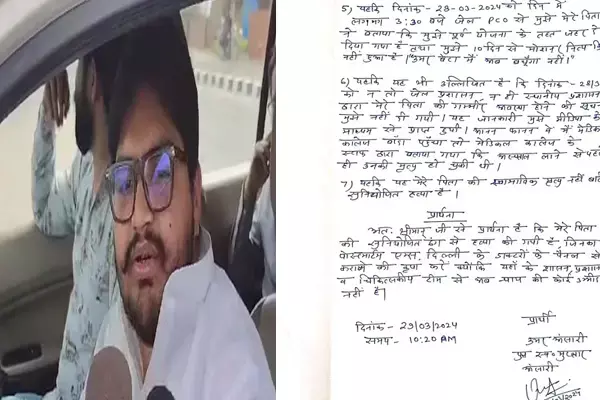 5) यहकि दिनांक - 28-03-2024 को दिन में
लगभग 3:30 बजे जेल PCO से मुझे मेरे पिता
ने बताया कि मुझे पूर्व योजना के तहत जहर दे
दिया गया है तथा मुझे 10 दिन से मोशन
नहीं हुआ है। "उमर बेटा मैं अब बचूँगा नहीं।"
6) यहकि यह भी उल्लिखित है कि दिनांक - 28/
को न तो जेल प्रशासन न ही स्थानीय प्रशासन
द्वारा मेरे पिता की गम्भीर अवस्था होने की सूचना
मुझे नहीं दी गयी। यह जानकारी मुझे मीडिया के
माध्यम से प्राप्त हुयी। आनन फानन में मैं मेडिकल
कालेज बांदा पहुँचा तो मेडिकल कालेज के
स्टाफ द्वारा बताया गया कि अस्पताल लाने से पहले
ही उनकी मृत्यु हो चुकी थी।
7) यहकि यह मेरे पिता की स्वाभाविक मृत्यु नहीं
सुनियोजित हत्या है।
प्रार्थना
अतः श्रीमान् जी से प्रार्थना है कि मेरे पिता
की सुनियोजित ढंग से हत्या की गयी है, जिनका
पोस्टमार्टम एम्स, दिल्ली के डाक्टरों के पैनल से
कराने की कृपा करें क्योंकि यहाँ के शासन, प्रशासन
व चिकित्सकीय टीम से अब न्याय की कोई उम्मीद
नहीं है।
दिनांक - 29/03/2024
समय - 10:20 AM
प्रार्थी
उमर अंसारी
पुत्र स्व० मुख्तार
अंसारी